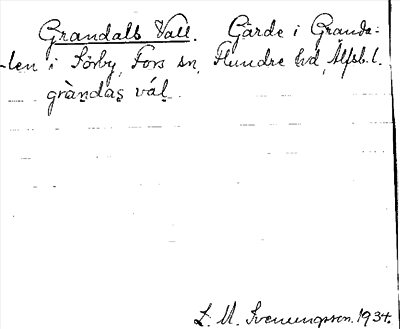 Grandals Vall. Gärde i Granda-
len i Sörby, Fors sn, Flundre hd, Älfsb. l.
gràndas vál.
L. M. Svenungsson. 1934.